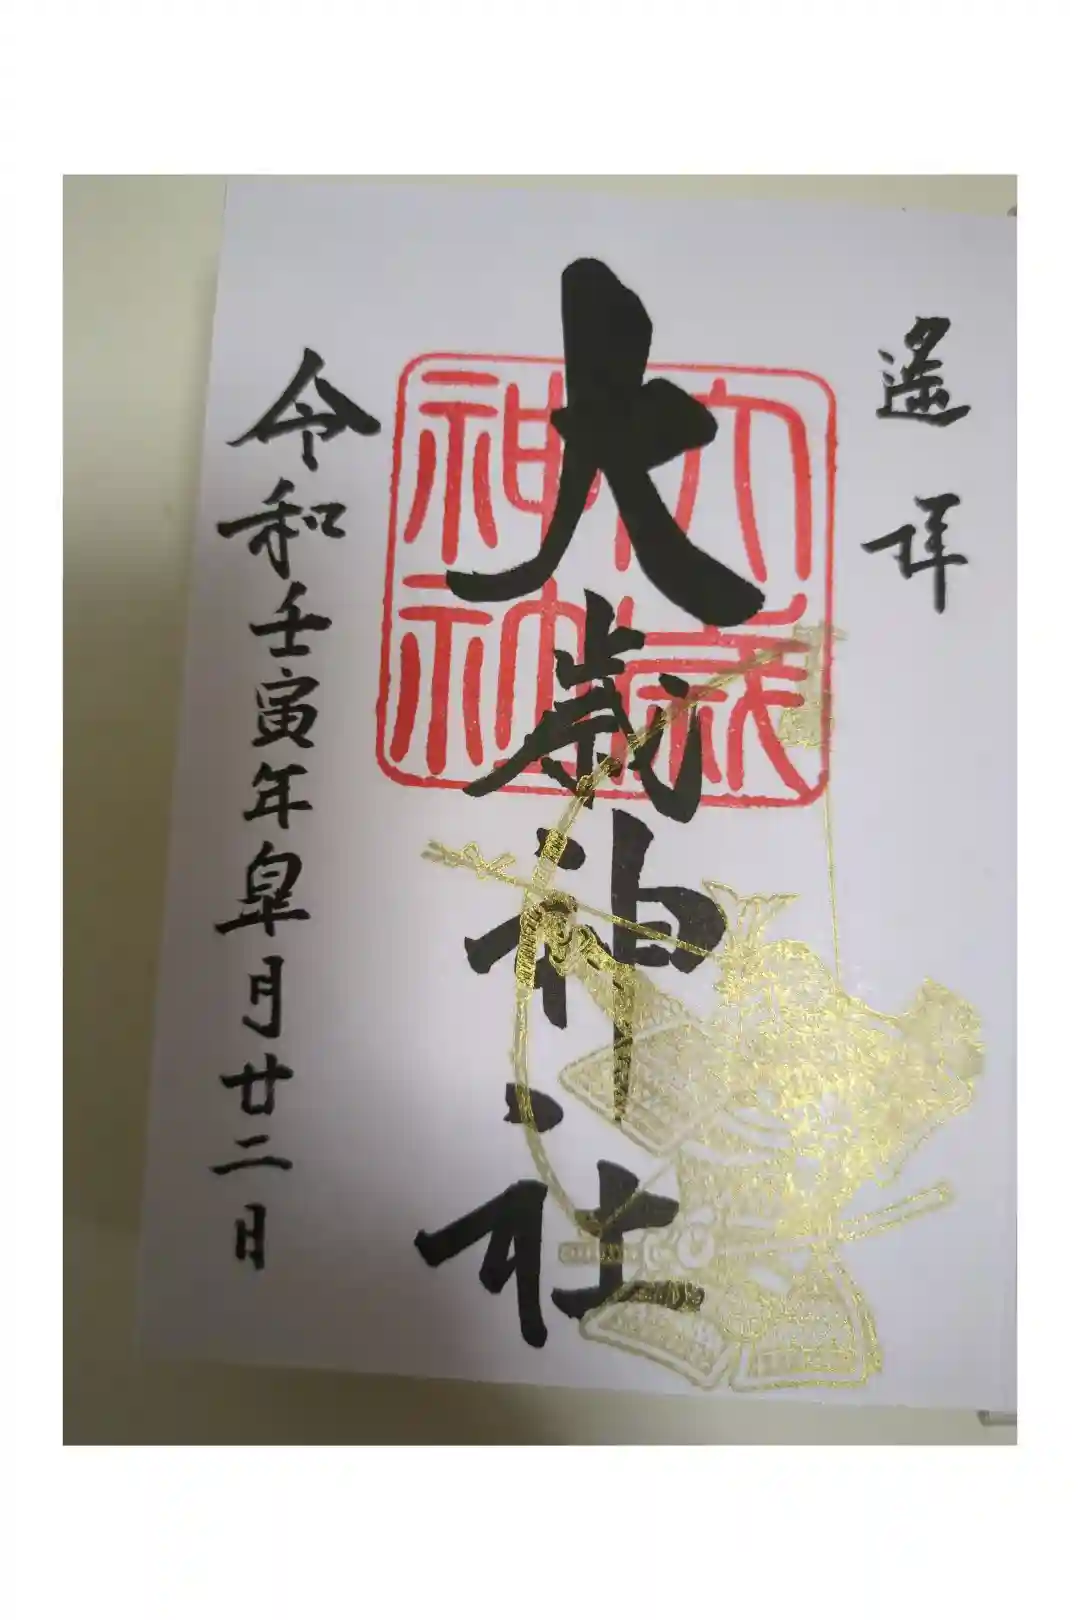 遙拝
大歳神社
大歳神社
令和壬寅年皐月廿二日